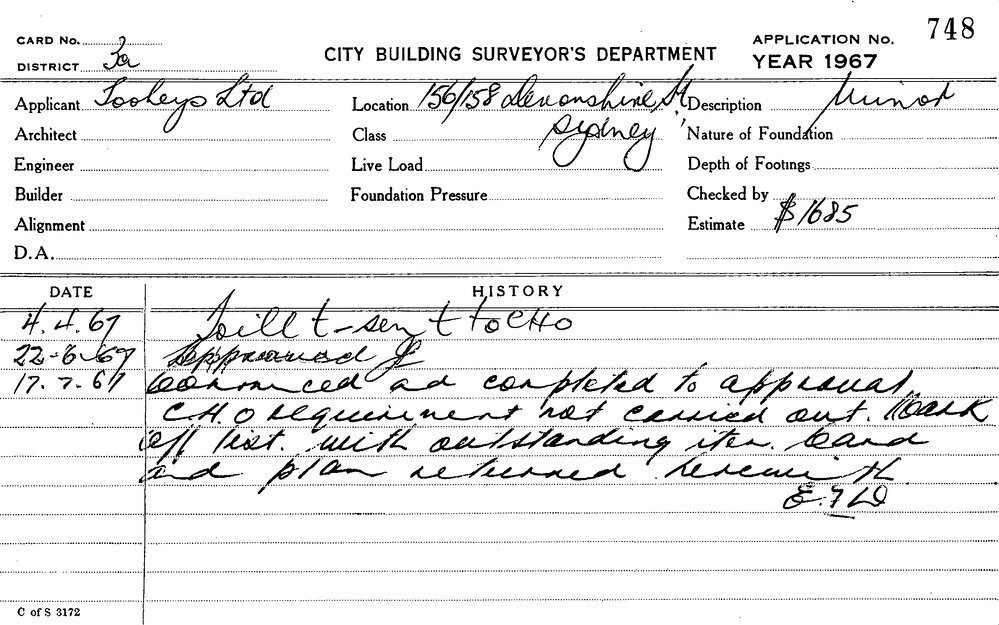 748
CARD No.
DISTRICT
CITY BUILDING SURVEYOR'S DEPARTMENT
APPLICATION No.
YEAR 1967
Applicant Tooheys Ltd
Location 156/158 Devonshire St
Sydney
Description Minor
Architect
Class
Nature of Foundation
Engineer
Live Load
Depth of Footings
Builder
Foundation Pressure
Checked by
Alignment
Estimate $1685
D.A.
DATE
HISTORY
4.4.67 sent to CHO
22-6-67 Approved
17.7.67 Commenced and completed to approval
C.H.O requirement not carried out. Mark
off list. with outstanding item. Card
and plan returned herewith
C of S 3172